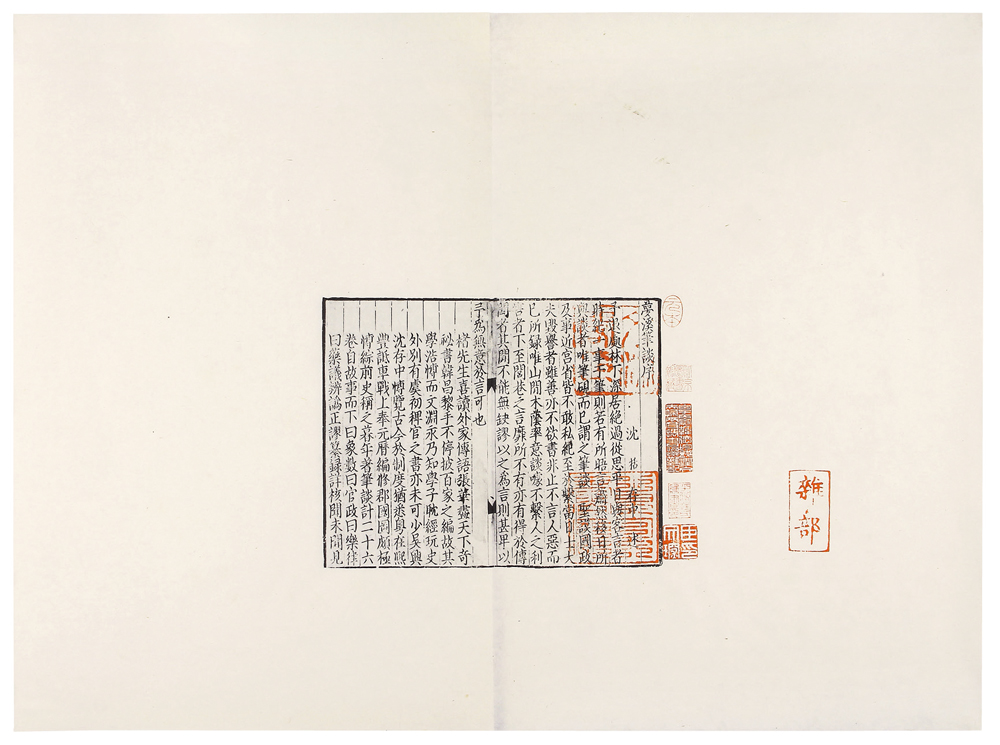 夢溪筆談序
沈括存中述
予退處林下深居絕過從思平日與客言者
時紀一事於筆則若有所晤言蕭然移日所
與談者唯筆硯而已謂之筆談聖謨國政
及事近宮省皆不敢私紀至於繫當日士大
夫毀譽者雖善亦不欲書非止不言人惡而
已所錄唯山間木蔭率意談噱不繫人之利
害者下至閭巷之言靡所不有亦有得於傳
聞者其間不能無缺謬以之為言則甚卑以
予為無意於言可也
褚先生喜讀外家傳語張華盡天下奇
祕書韓昌黎手不停披百家之編故其
學浩博而文淵永乃知學子耽經玩史
外別有虞初稗官之書亦未可少吳興
沈存中博覽古今於制度猶悉身在熙
豐詆車戰上奉元曆編修郡國圖頗極
博綜前史稱之暮年著筆談計二十六
卷自故事而下曰象數曰官政曰樂律
曰藥議辨譌正謬纂錄詳核聞未聞見
雜部